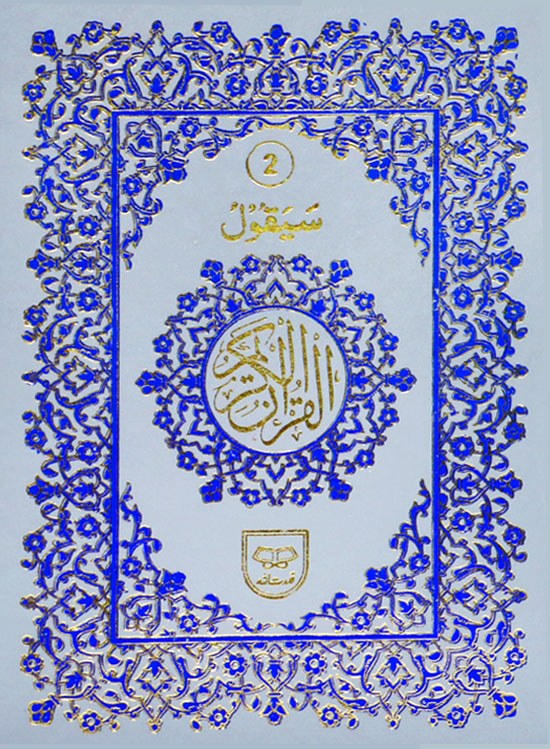 2
سَيَقُوْلُ
القرآن الكريم
قدرت اللہ